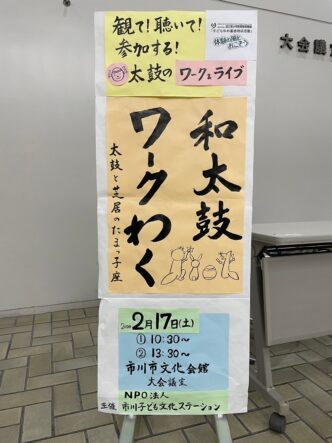 観て!聴いて!
参加する!
太鼓の ワーク&ライブ
体験の風をおこそう
和太鼓
ワークわく
太鼓と芝居のたまっ子座
2月17日(土)
① 10:30〜
② 13:30〜
市川市文化会館
大会議室
NPO法人
主催 市川子ども文化ステーション
大会議